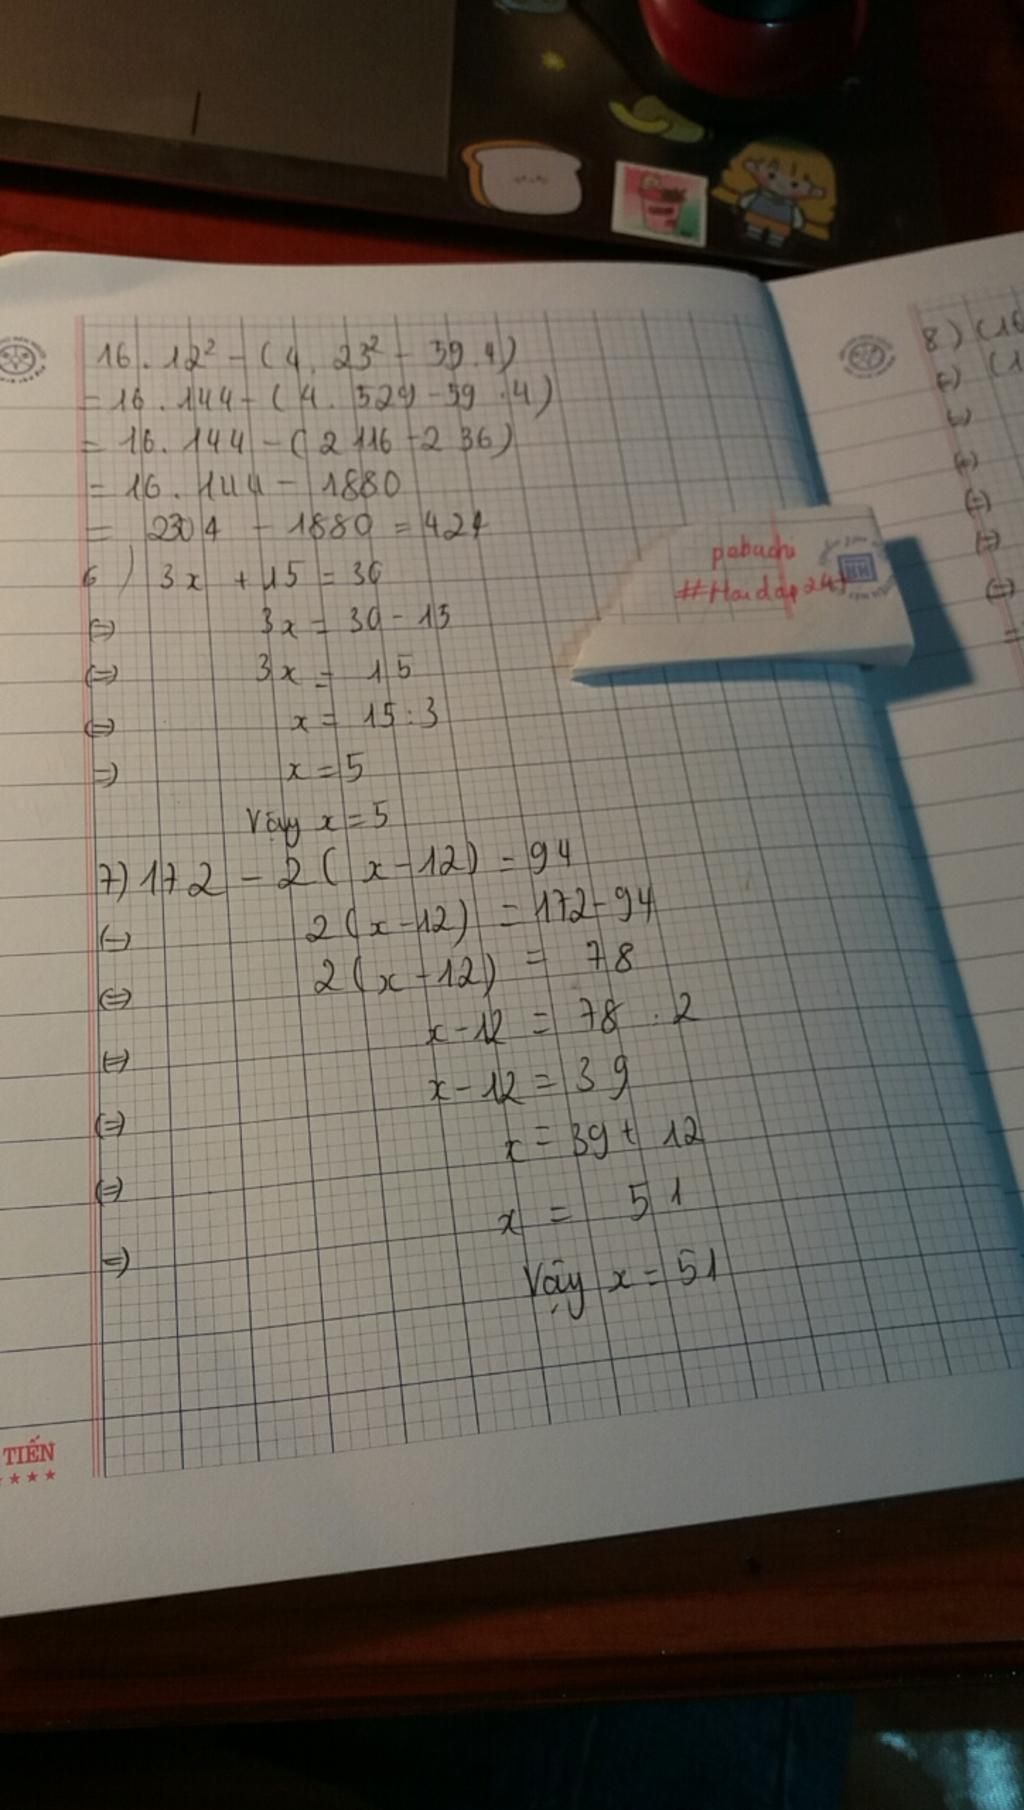 16 . 12² - (4 . 23² - 59 . 4)
= 16 . 144 - (4 . 529 - 59 . 4)
= 16 . 144 - (2116 - 236)
= 16 . 144 - 1880
= 2304 - 1880 = 424
6) 3x + 15 = 30
(=) 3x = 30 - 15
(=) 3x = 15
(=) x = 15 : 3
=) x = 5
Vậy x = 5
7) 172 - 2(x - 12) = 94
(=) 2(x - 12) = 172 - 94
(=) 2(x - 12) = 78
(=) x - 12 = 78 : 2
(=) x - 12 = 39
(=) x = 39 + 12
=) x = 51
Vậy x = 51
pebuchi
#Hoidap247
8) (16
(=) (1
(=)
(=)
(=)
(=)
(=)
=)
TIẾN